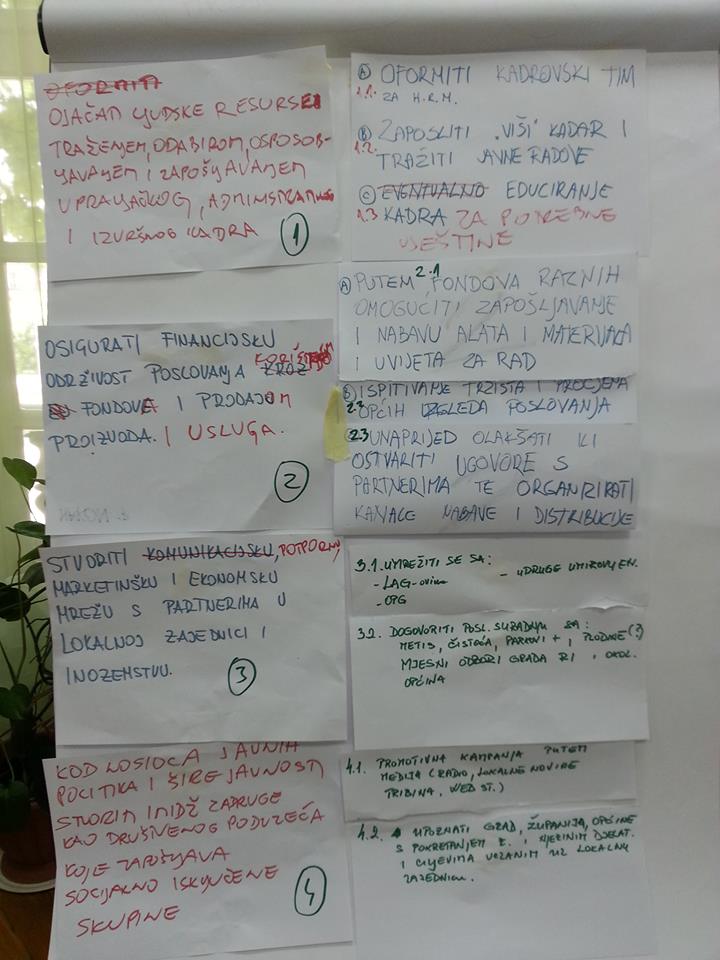 OFORMITI
OJAČATI LJUDSKE RESURSE
TRAŽENJEM, ODABIROM, OSPOSOB-
LJAVANJEM I ZAPOŠLJAVANJEM
UPRAVLJAČKOG,
I IZVRŠNOG KADRA
1
OSIGURATI FINANCIJSKU
ODRŽIVOST POSLOVANJA KROZ
FONDOVA I PRODAJOM
PROIZVODA. I USLUGA.
2
STVORITI KOMUNIKACIJSKU, POTPORNU,
MARKETINŠKU I EKONOMSKU
MREŽU S PARTNERIMA U
LOKALNOJ ZAJEDNICI I
INOZEMSTVU.
3
KOD NOSIOCA JAVNIH
POLITIKA I ŠIRE JAVNOSTI
STVORITI IMIDŽ ZADRUGE
KAO DRUŠTVENOG PODUZEĆA
KOJE ZAPOŠLJAVA
SOCIJALNO ISKLJUČENE
SKUPINE
4
A OFORMITI KADROVSKI TIM
1.1. ZA H.R.M.
B ZAPOSLITI "VIŠI" KADAR I
1.2. TRAŽITI JAVNE RADOVE
C EVENTUALNO EDUCIRANJE
1.3 KADRA ZA POTREBNE
VJEŠTINE
2.1
A PUTEM FONDOVA RAZNIH
OMOGUĆITI ZAPOŠLJAVANJE
I NABAVU ALATA I MATERIJALA
I UVIJETA ZA RAD
B ISPITIVANJE TRŽIŠTA I PROCJENA
2.2 OPĆIH IZGLEDA POSLOVANJA
2.3 UNAPRIJED OLAKŠATI ILI
OSTVARITI UGOVORE S
PARTNERIMA TE ORGANIZIRATI
KANALE NABAVE I DISTRIBUCIJE
3.1. UMREŽITI SE SA:
- LAG-ovima - UDRUGE UMIROVLJEN.
- OPG
3.2. DOGOVORITI POSL. SURADNJU SA:
METIS, ČISTOĆA, PARKOVI + , PLODINE (?)
MJESNI ODBORI GRADA RI , OKOL.
OPĆINA
4.1. PROMOTIVNA KAMPANJA PUTEM
MEDIJA (RADIO, LOKALNE NOVINE
TRIBINA, WEB ST.)
4.2. UPOZNATI GRAD, ŽUPANIJA, OPĆINE
S POKRETANJEM Z. I NJEZINIM DJELAT.
I CILJEVIMA VEZANIM UZ LOKALNU
ZAJEDNICU.